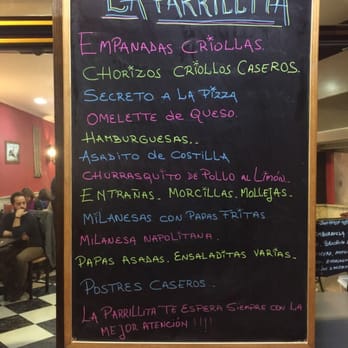 LA PARRILLITA
EMPANADAS CRIOLLAS.
CHORIZOS CRIOLLOS CASEROS.
SECRETO A LA PIZZA
OMELETTE DE QUESO.
HAMBURGUESAS..
ASADITO DE COSTILLA
CHURRASQUITO DE POLLO AL LIMÓN.
ENTRAÑAS. MORCILLAS. MOLLEJAS.
MILANESAS CON PAPAS FRITAS.
MILANESA NAPOLITANA.
PAPAS ASADAS. ENSALADITAS VARIAS.
POSTRES CASEROS.
LA PARRILLITA TE ESPERA SIEMPRE CON LA
MEJOR ATENCIÓN !!!!